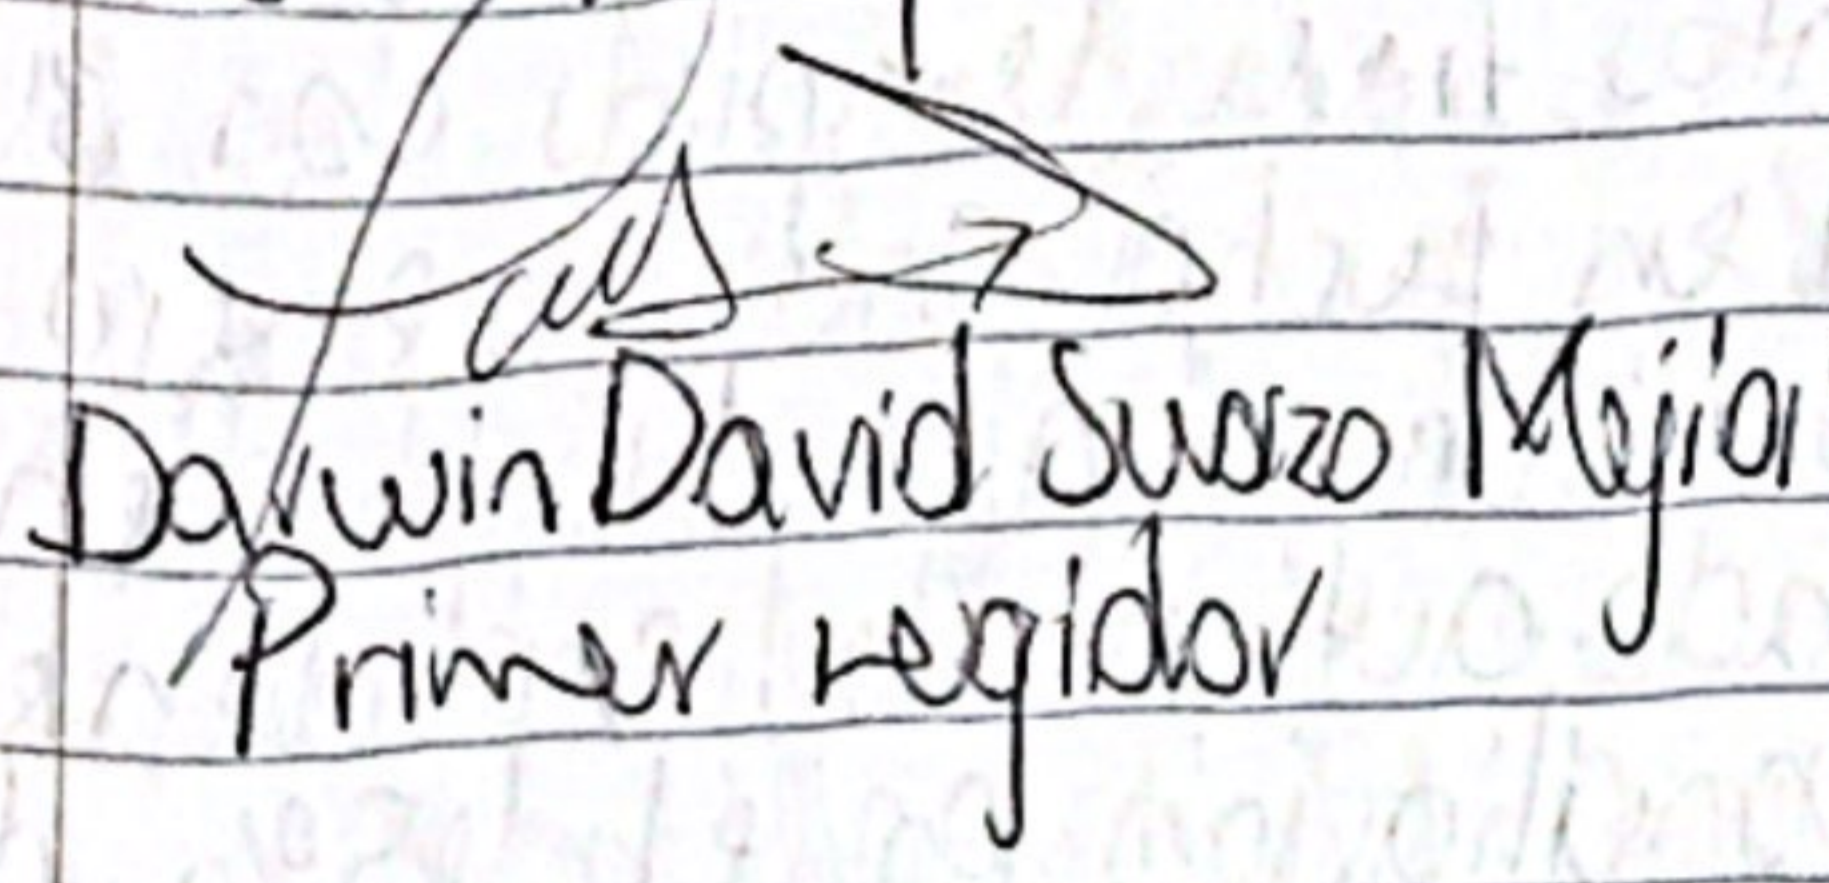 Darwin David Suazo Mejía
Primer regidor